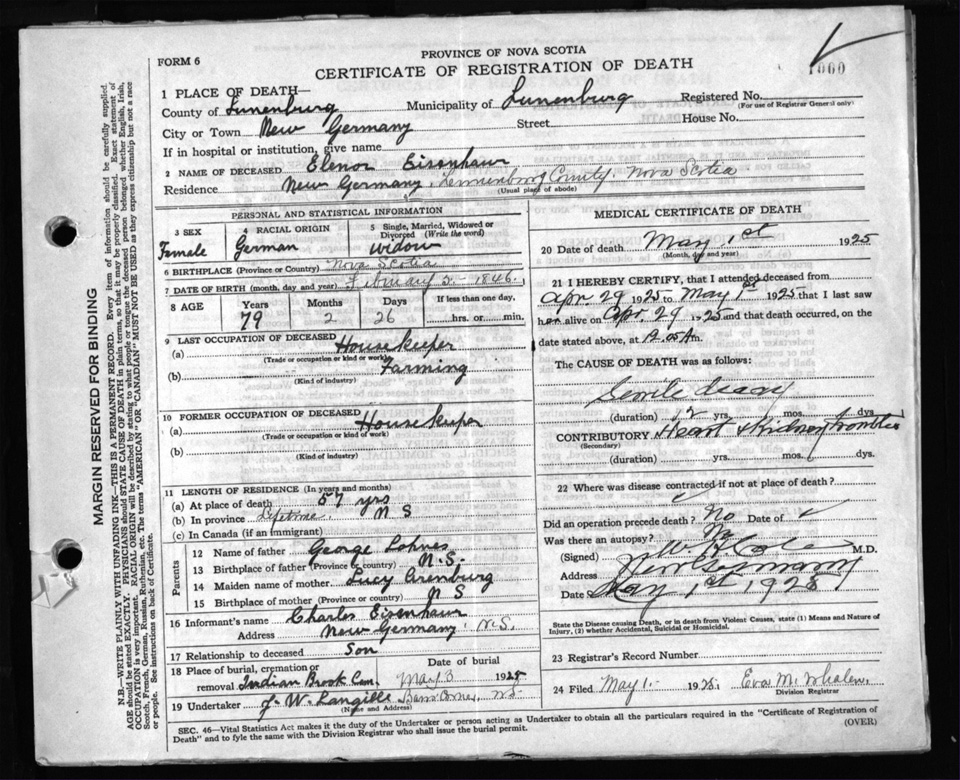 PROVINCE OF NOVA SCOTIA
FORM 6
CERTIFICATE OF REGISTRATION OF DEATH
1000
1 PLACE OF DEATH—
County of Lunenburg Municipality of Lunenburg Registered No.
(For use of Registrar General only)
City or Town New Germany Street House No.
If in hospital or institution, give name
2 NAME OF DECEASED Elenor Eisenhaur
Residence New Germany, Lunenburg County. Nova Scotia
(Usual place of abode)
PERSONAL AND STATISTICAL INFORMATION
3 SEX 4 RACIAL ORIGIN 5 Single, Married, Widowed or Divorced (Write the word)
Female German widow
6 BIRTHPLACE (Province or Country) Nova Scotia
7 DATE OF BIRTH (month, day and year) February 2. 1846.
8 AGE Years Months Days If less than one day,
79 2 26 hrs. or min.
9 LAST OCCUPATION OF DECEASED
(a) Housekeeper
(Trade or occupation or kind of work)
(b) Farming
(Kind of industry)
10 FORMER OCCUPATION OF DECEASED
(a) Housekeeper
(Trade or occupation or kind of work)
(b)
(Kind of industry)
11 LENGTH OF RESIDENCE (In years and months)
(a) At place of death 57 yrs
(b) In province Lifetime. N S
(c) In Canada (if an immigrant)
Parents
12 Name of father George Lohnes
13 Birthplace of father (Province or country) N.S.
14 Maiden name of mother Lucy Arenburg
15 Birthplace of mother (Province or country) N S
16 Informant's name Charles Eisenhaur
Address New Germany. N.S.
17 Relationship to deceased Son
18 Place of burial, cremation or Date of burial
removal Indian Brook Cem. May 3 1925
19 Undertaker J. W. Langille
(Name and Address)
MEDICAL CERTIFICATE OF DEATH
20 Date of death May 1st 1925
(Month, day and year)
21 I HEREBY CERTIFY, that I attended deceased from
Apr 29 1925 to May 1st 1925 that I last saw
her alive on Apr. 29 1925 and that death occurred, on
date stated above, at m.
The CAUSE OF DEATH was as follows:
Senile decay
(duration) 2 yrs. mos. dys.
CONTRIBUTORY Heart & Kidney trouble
(Secondary)
(duration) yrs. mos. dys.
22 Where was disease contracted if not at place of death?
Did an operation precede death? No Date of
Was there an autopsy? No
(Signed) Cole M.D.
Address New Germany
Date May 1st 1925
State the Disease causing Death, or in death from Violent Causes, state (1) Means and Nature of
Injury, (2) whether Accidental, Suicidal or Homicidal.
23 Registrar's Record Number
24 Filed May 1. 1925. Eva M. Whalen.
Division Registrar
SEC. 46—Vital Statistics Act makes it the duty of the Undertaker or person acting as Undertaker to obtain all the particulars required in the "Certificate of Registration of
Death" and to fyle the same with the Division Registrar who shall issue the burial permit. (OVER)
MARGIN RESERVED FOR BINDING
N.B.—WRITE PLAINLY WITH UNFADING INK—THIS IS A PERMANENT RECORD. Every item of information should be carefully supplied.
AGE should be stated EXACTLY. PHYSICIANS should STATE CAUSE OF DEATH in plain terms, so that it may be properly classified. Exact statement of
OCCUPATION is very important. RACIAL ORIGIN will be described by stating to what people or tongue the deceased person belonged whether English, Irish,
Scotch, French, German, Russian, Ruthenian, etc. The terms "AMERICAN" OR "CANADIAN" MUST NOT BE USED as they express citizenship but not a race
or people. See instructions on back of Certificate.